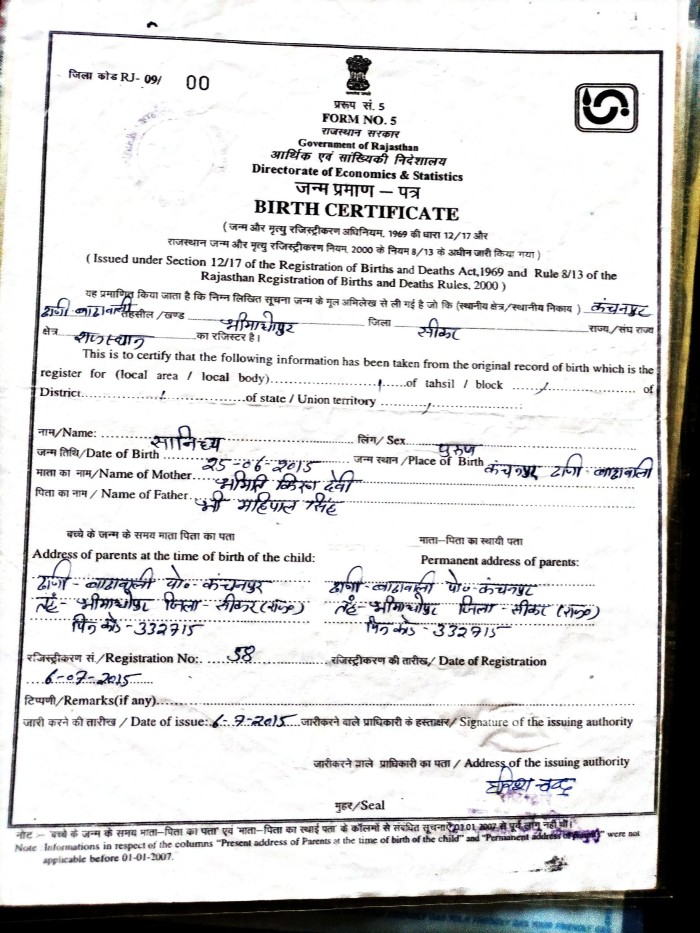 जिला कोड RJ- 09/ 00
प्ररूप सं. 5
FORM NO. 5
राजस्थान सरकार
Government of Rajasthan
आर्थिक एवं सांख्यिकी निदेशालय
Directorate of Economics & Statistics
जन्म प्रमाण – पत्र
BIRTH CERTIFICATE
( जन्म और मृत्यु रजिस्ट्रीकरण अधिनियम, 1969 की धारा 12/17 और
राजस्थान जन्म और मृत्यु रजिस्ट्रीकरण नियम, 2000 के नियम 8/13 के अधीन जारी किया गया )
( Issued under Section 12/17 of the Registration of Births and Deaths Act,1969 and Rule 8/13 of the
Rajasthan Registration of Births and Deaths Rules, 2000 )
यह प्रमाणित किया जाता है कि निम्न लिखित सूचना जन्म के मूल अभिलेख से ली गई है जो कि (स्थानीय क्षेत्र/स्थानीय निकाय ) कंचनपुर
ढाणी तहसील /खण्ड श्रीमाधोपुर जिला सीकर राज्य/संघ राज्य
क्षेत्र राजस्थान का रजिस्टर है।
This is to certify that the following information has been taken from the original record of birth which is the
register for (local area / local body)..........................of tahsil / block .......................... of
District..........................of state / Union territory ..........................
नाम/Name: सानिध्य लिंग/ Sex पुरुष
जन्म तिथि/Date of Birth 25-06-2015 जन्म स्थान /Place of Birth कंचनपुर ढाणी
माता का नाम/Name of Mother श्रीमति किरण देवी
पिता का नाम / Name of Father श्री महिपाल सिंह
बच्चे के जन्म के समय माता पिता का पता माता–पिता का स्थायी पता
Address of parents at the time of birth of the child: Permanent address of parents:
ढाणी - पो॰ कंचनपुर ढाणी - पो॰ कंचनपुर
तहं- श्रीमाधोपुर जिला - सीकर (राज॰) तहं- श्रीमाधोपुर जिला - सीकर (राज॰)
पिन कोड - 332715 पिन कोड - 332715
रजिस्ट्रीकरण सं./Registration No: 58 रजिस्ट्रीकरण की तारीख/ Date of Registration
6-07-2015
टिप्पणी/Remarks(if any)..........................
जारी करने की तारीख / Date of issue: 6-7-2015 जारीकरने वाले प्राधिकारी के हस्ताक्षर/ Signature of the issuing authority
जारीकरने वाले प्राधिकारी का पता / Address of the issuing authority
मुहर/Seal
नोट :- 'बच्चे के जन्म के समय माता-पिता का पता' एवं 'माता-पिता का स्थाई पता' के कॉलमों से संबंधित सूचनाऐं 01.01.2007 से पूर्व लागू नहीं थी।
Note :Informations in respect of the columns "Present address of Parents at the time of birth of the child" and "Permanent address of parents" were not
applicable before 01-01-2007.